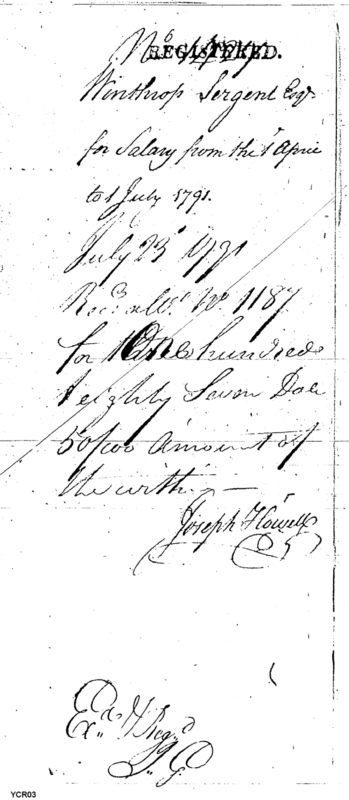 REGISTERED.
Winthrop Sergent Esqr.
for Salary from the 1st April
to 1 July 1791.
July 23d 1791
Recd. a Wt. No. 1187
for One hundred
& eighty Seven Dolls
50/100 Amount of
the within
Joseph Howell
Exd. & Regd.
J. G.
YCR03